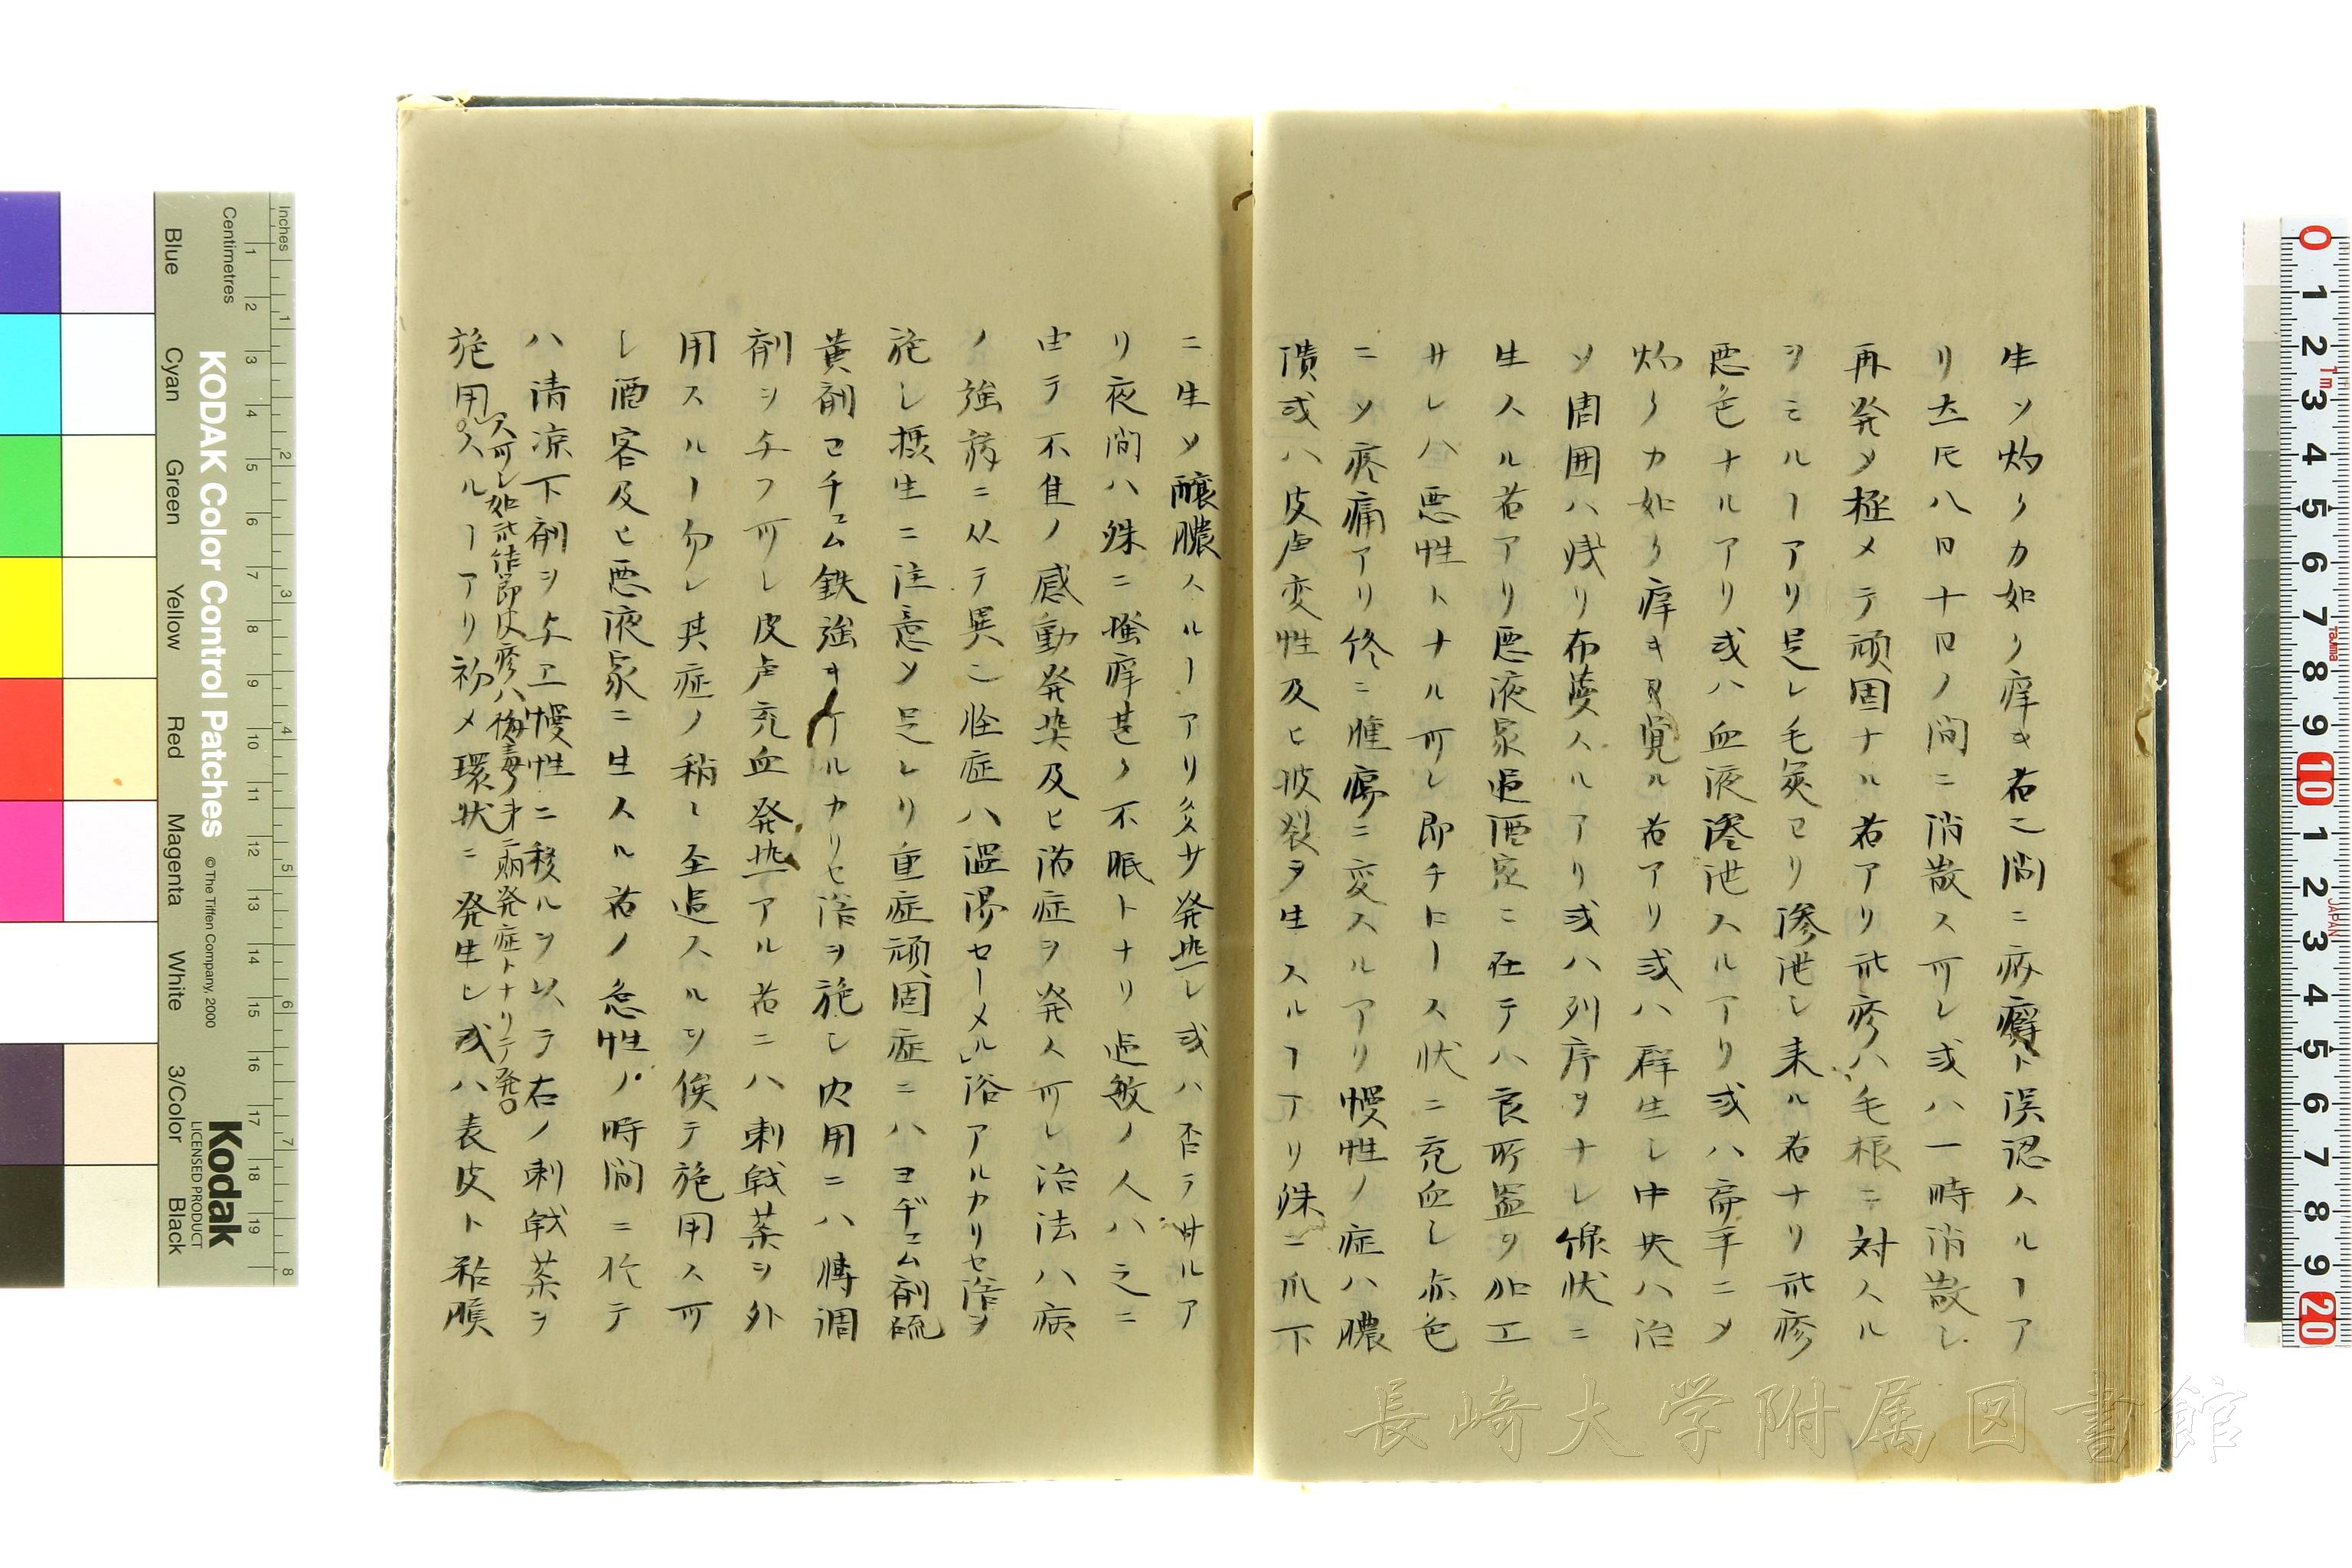 生ソ灼クカ如ク痒キ者之間ニ疥癬ト誤認スルーア
リ左㞋八日十日ノ間ニ消散ス可シ或ハ一時消散シ
再発メ極メテ頑固ナル者アリ此疹ハ毛根ニ対スル
ヲミルーアリ是レ毛炭ヨリ滲泄シ来ル者ナリ此疹
悪色ナルアリ或ハ血液滲泄スルアリ或ハ帝手ニメ
灼クカ如ク痒キヲ覚ル者アリ或ハ群生シ中央ハ治
ソ周囲ハ残リ布蔓スルアリ或ハ列序ヲナシ線状ニ
生スル者アリ悪液家過酒家ニ在テハ良所置ヲ加工
サレハ悪性トナル可シ即チトース状ニ充血シ赤色
ニソ疼痛アリ終ニ腫瘍ニ変スルアリ慢性ノ症ハ膿
潰或ハ皮膚変性及ヒ披裂ヲ生スルーアリ殊ニ爪下
ニ生ソ醸膿スルーアリ灸サ発熱シ或ハ否ラサルア
リ夜間ハ殊ニ搔痒甚ク不眠トナリ過敏ノ人ハ之ニ
由テ不隹ノ感動発熱及ヒ諸症ヲ発ス可シ治法ハ病
ノ強弱ニ从テ異ニ怪症ハ温湯セーメル浴アルカリセ浴ヲ
施シ摂生ニ注意ソ足レリ重症頑固症ニハヨヂユム剤硫
黄剤ヨチユム鉄強キアルカリセ浴ヲ施シ内用ニハ轉調
剤ヲ与フ可シ皮膚充血発熱アル者ニハ刺戟薬ヲ外
用スルー勿レ其症ノ稍々全退スルヲ俟テ施用ス可
シ酒客及ヒ悪液家ニ生スル者ノ急性ノ時間ニ於テ
ハ清凉下剤ヲ与エ慢性ニ移ルヲ以テ右ノ刺戟薬ヲ
ス可シ如此作節伎疹ハ梅毒ノ才二病発症トナリテ発
施用スルーアリ初メ環状ニ発生シ或ハ表皮ト粘膜
長崎大学附属図書館
KODAK Color Control Patches
© The Tiffen Company, 2000
Kodak
LICENSED PRODUCT
Inches
Centimetres
Blue
Cyan
Green
Yellow
Red
Magenta
White
3/Color
Black
JAPAN